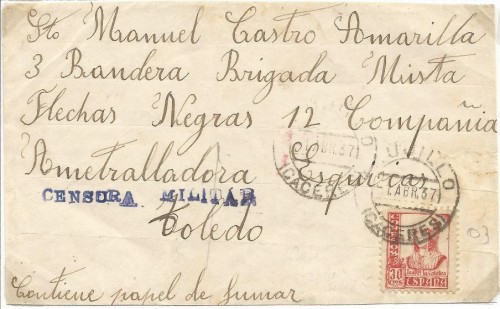 Sto Manuel Castro Amarilla
3 Bandera Brigada Mista
Flechas Negras 12 Compañia
Ametralladora Esquivias
CENSURA MILITAR
Toledo
Contiene papel de fumar
UJILLO
ABR.37
(CACERES)
ABR.37
(CACERE
30
CTS
Isabel la Catolica
ESPAÑA
03